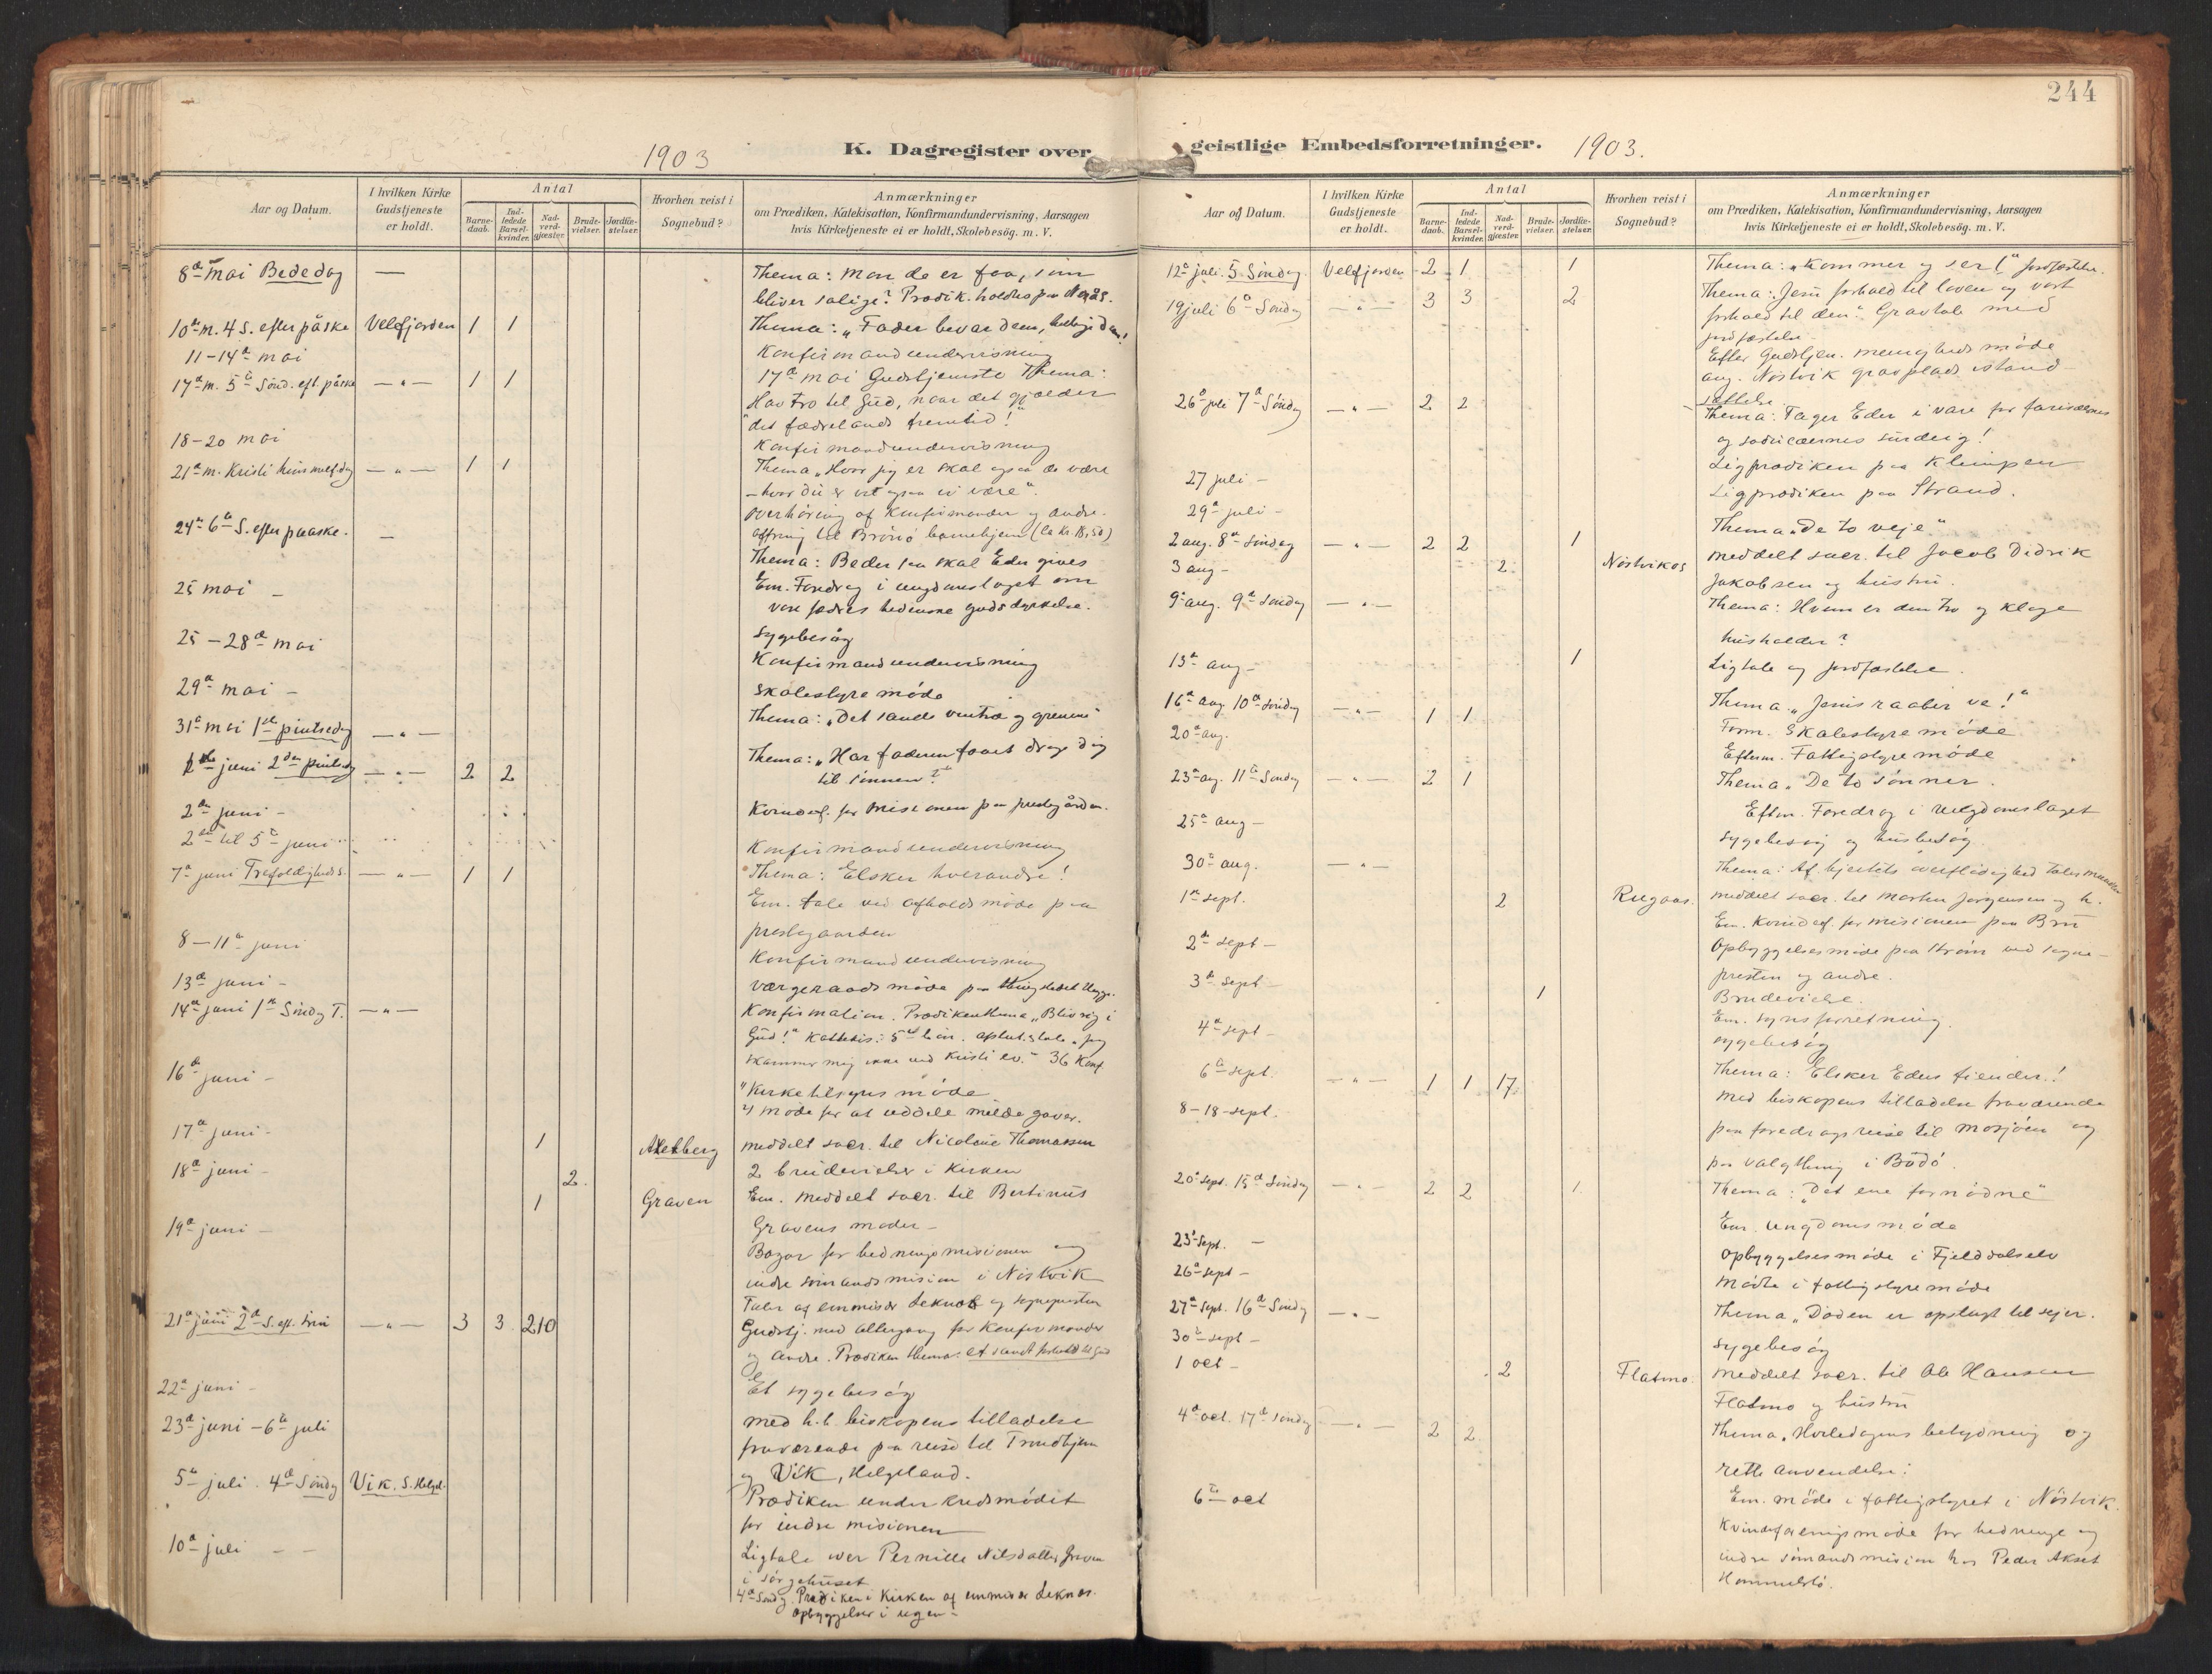 244
1903
K. Dagregister over
Aar og Datum.
I hvilken Kirke Gudstjeneste er holdt.
Antal
Barnedaab.
Indledede Barselkvinder.
Nadverdgjæster.
Brudevielser.
Jordfæstelser.
Hvorhen reist i Sognebud?
Anmærkninger
om Prædiken, Katekisation, Konfirmandundervisning, Aarsagen
hvis Kirketjeneste ei er holdt, Skolebesög. m. V.
8de mai Bededag — Thema: Mon de er faa, som
bliver salige?
10de m. 4 S. efter påske Velfjorden 1 1 Thema: „Fader bevar dem,
11-14de mai Konfirmandundervisning
17de m. 5te Sönd. eft. påske — " — 1 1 17de mai Gudstjeneste Thema:
Hav tro til Gud, naar det gjælder
det fædrelands fremtid!
18-20 mai Konfirmandundervisning
21de m. Kristi himmelfdag — " — 1 1 Thema „Hvor jeg er skal ogsaa de være
– hvor du er vil ogsaa vi være".
overhöring af Konfirmander og andre.
24de 6te S. efter paaske. — offring til Brönö barnehjem
Thema: Beder saa skal Eder gives
25 mai – Em. Foredrag i ungdomslaget om
vore fædres hedenske gudsdyrkelse.
25 – 28de mai Sygebesög
Konfirmandundervisning
29de mai – Skolestyremöde
31te mai 1ste pintsedag — " — Thema: „Det sande vintræ og grenene"
1ste juni 2den pintsedag — " — 2 2 Thema: „Har faderen faaet drage dig
til sönnen?"
2den juni – Kvindef. for misionen paa prestegården.
2den til 5te juni Konfirmandundervisning
7de juni Trefoldigheds s. — " — 1 1 Thema: Elsker hverandre!
Em. tale ved afholdsmöde paa
prestegaarden
8 – 11te juni Konfirmandundervisning
13de juni – Værgeraadsmöde paa
14de juni 1ste Söndag T. — " — Konfirmation. Prædikenthema „Bliv rig i
Gud!"
skammer mig ikke ved Kristi ev." 36 Konf.
16de juni – Kirketilsynsmöde
möde for at uddele milde gaver.
17de juni – 1 meddelt sacr. til Nicoline Thomassen
18de juni – 2. 2 brudevielser i Kirken
1 Graven Em. meddelt sacr. til Bertinus
Gravens moder –
19de juni – Bazar for hedningemisionen og
indre sömandsmision i Nöstvik
Taler af emmisær Leknes og sognepresten
21de juni 2den S. eft. trin — " — 3 3 210 Gudstj. med altergang for Konfirmander
og andre. Prædiken thema:
22de juni – Et sygebesög
23de juni – 6te juli med h.h. biskopens tilladelse
fraværende paa reise til Trondhjem
og Vik, Helgeland.
5te juli. 4de Söndag Vik. S. Helgel. Prædiken under kredsmödet
for indre misionen
10de juli – – Ligtale over Pernille Nilsdatter
i sörgehuset
4de Söndag. Prædiken i Kirken af emmisær Leknes.
opbyggelser i ugen –
geistlige Embedsforretninger. 1903.
Aar og Datum.
I hvilken Kirke Gudstjeneste er holdt.
Antal
Barnedaab.
Indledede Barselkvinder.
Nadverdgjæster.
Brudevielser.
Jordfæstelser.
Hvorhen reist i Sognebud?
Anmærkninger
om Prædiken, Katekisation, Konfirmandundervisning, Aarsagen
hvis Kirketjeneste ei er holdt, Skolebesög. m. V.
12te juli. 5. Söndag. Velfjorden 2 1 1 Thema: „Kommer og ser!" jordfæstelse.
19 juli 6te Söndag — " — 3 3 2 Thema: „Jesu forhold til loven og vort
forhold til den". Gravtale med
jordfæstelse –
Efter Gudstjen. menighedsmöde
ang. Nöstvik gravplads istand-
sættelse.
26de juli 7de Söndag — " — 2 2 Thema: Tager Eder i vare for farisæernes
og saducæernes surdeig!
27 juli – Ligprædiken paa Klimpen
29de juli – Ligprædiken paa Strand.
2 aug. 8de söndag — " — 2 2 1 Thema „De to veje"
3 aug – 2 Nöstvikås meddelt sacr. til Jacob Didrik
Jakobsen og hustru.
9de aug. 9de Söndag — " — Thema: Hvem er den tro og kloge
husholder?
13de aug – 1 Ligtale og jordfæstelse.
16de aug. 10de söndag — " — 1 1 Thema „Jesus raaber ve!"
20de aug. Form. Skolestyremöde
Efterm. Fattigstyremöde
23de aug. 11te Söndag — " — 2 1 Thema „De to sönner.
Eftm. Foredrag i ungdomslaget
25de aug – sygebesög og husbesög.
30te aug. — " — Thema: Af hjertets overflödighed taler munden
1ste sept. 2 Rugaas. meddelt sacr. til Morten Jörgensen og h.
Em. Kvindef. for misionen paa Bru
2den sept – Opbyggelsesmöde paa Ström ved sogne-
presten og andre.
3de sept – 1 Brudevielse.
Em. synsforretning.
4de sept – sygebesög
6te sept. — " — 1 1 17 Thema: Elsker Eders fiender!
8-18-sept. Med biskopens tilladelse fraværende
paa foredragsreise til Mosjöen og
paa valgthing i Bodö.
20de sept. 15de Söndag — " — 2 2 1 Thema: „Det ene fornödne"
Em. ungdomsmöde
23de sept. – opbyggelsesmöde i Fjelddalselv
26de sept – Mödte i fattigstyremöde
27de sept. 16de Söndag — " — Thema „Döden er opslugt til sejer.
30te sept – sygebesög
1 oct – 2 Flatmo. meddelt sacr. til Ole Hansen
Flatmo og hustru
4de oct. 17de söndag — " — 2 2 Thema „Hviledagens betydning og
rette anvendelse.
6te oct Em. möde i fattigstyret i Nöstvik.
Kvindeforeningsmöde for hedninge og
indre sömandsmision hos Peder Akset
Hommelstö.